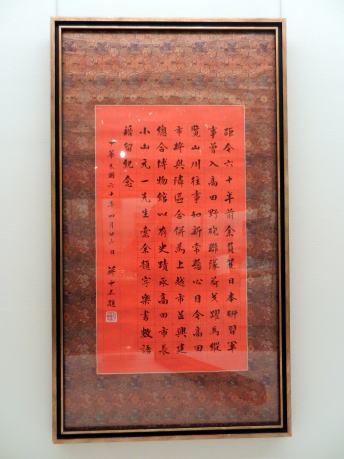 距今六十年前余負笈日本聯習軍
事曾入高田野砲聯隊荷戈躍馬縱
覽山川往事如新常縈心目今高田
市粹與隣區合併為上越市並興建
總合博物館以存史蹟承高田市長
小山元一先生索余題字樂書數語
藉留紀念
中華民國六十年四月廿六日 蔣中正題